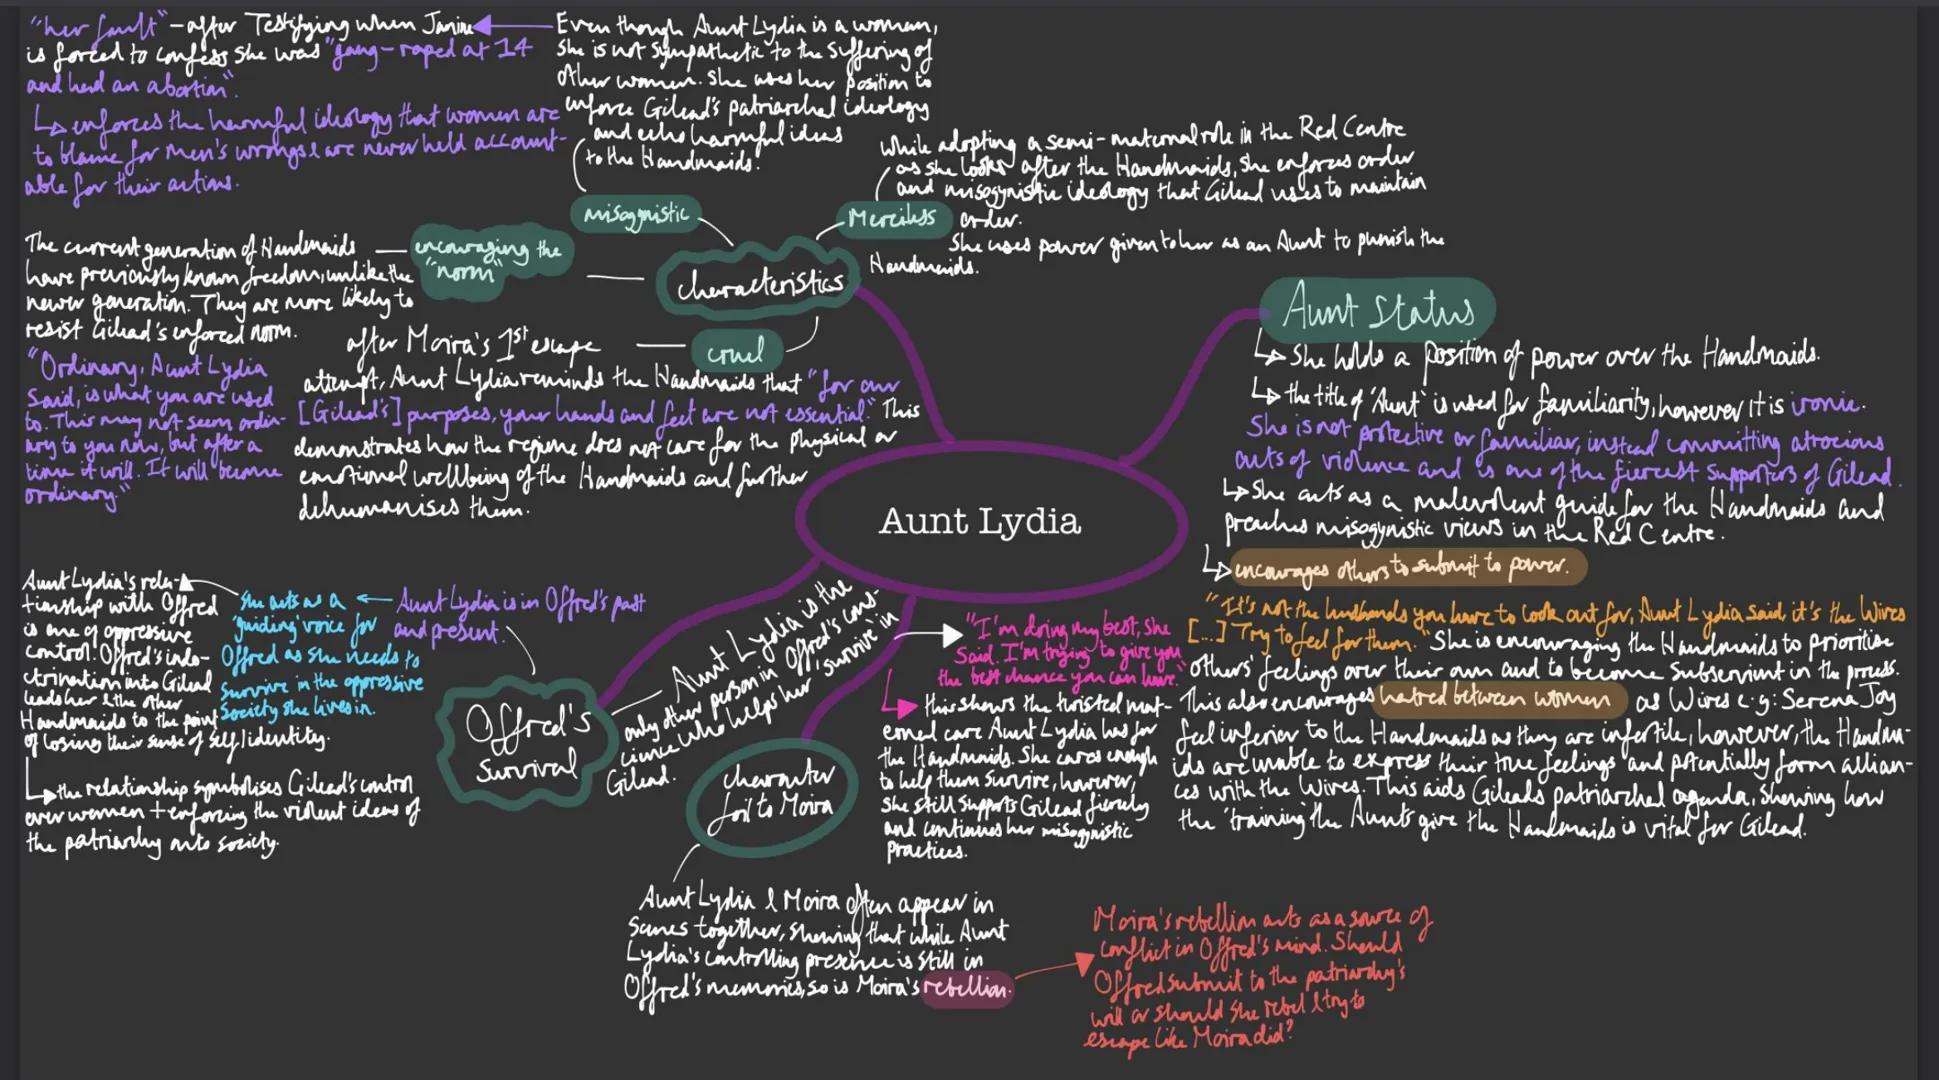 "her fault" - after Testifying when Janine
is forced to confess she was "gang-raped at 14
and had an abortion".
↳ enforces the harmful ideology that women are
to blame for men's wrongs & are never held account-
able for their actions.
Even though Aunt Lydia is a woman,
she is not sympathetic to the suffering of
other women. She uses her position to
enforce Gilead's patriarchal ideology
and echo harmful ideas
to the Handmaids.
misogynistic
while adopting a semi-maternal role in the Red Centre
as she looks after the Handmaids, she enforces order
and misogynistic ideology that Gilead uses to maintain
order.
She uses power given to her as an Aunt to punish the
Handmaids.
Merciless
characteristics
encouraging the
"norm"
The current generation of Handmaids
have previously known freedom, unlike the
newer generation. They are more likely to
resist Gilead's enforced norm.
"Ordinary, Aunt Lydia
said, is what you are used
to. This may not seem ordin-
ary to you now, but after a
time it will. It will become
ordinary"
cruel
after Moira's 1st escape
attempt, Aunt Lydia reminds the Handmaids that "for our
[Gilead's] purposes, your hands and feet are not essential." This
demonstrates how the regime does not care for the physical or
emotional wellbeing of the Handmaids and further
dehumanises them.
Aunt Status
↳ She holds a position of power over the Handmaids.
↳ the title of 'Aunt' is used for familiarity, however it is ironic.
She is not protective or familiar, instead committing atrocious
acts of violence and is one of the fiercest supporters of Gilead.
↳ She acts as a malevolent guide for the Handmaids and
preaches misogynistic views in the Red Centre.
↳ encourages others to submit to power.
"It's not the husbands you have to look out for, Aunt Lydia said, it's the Wives
[...] Try to feel for them." She is encouraging the Handmaids to prioritise
others' feelings over their own and to become subservient in the process.
This also encourages hatred between women as Wives e.g: Serena Joy
feel inferior to the Handmaids as they are infertile, however, the Handma-
ids are unable to express their true feelings and potentially form allian-
ces with the Wives. This aids Gileads patriarchal agenda, showing how
the 'training' the Aunts give the Handmaids is vital for Gilead.
Aunt Lydia
Offred's
survival
Aunt Lydia is in Offred's past
and present.
she acts as a
'guiding' voice for
Offred as she needs to
survive in the oppressive
society she lives in.
Aunt Lydia's rela-
tionship with Offred
is one of oppressive
control. Offred's indo-
ctrination into Gilead
leads her & the other
Handmaids to the point
of losing their sense of self/identity.
↳ the relationship symbolises Gilead's control
over women + enforcing the violent ideas of
the patriarchy onto society.
Aunt Lydia is the
only other person in Offred's cons-
cience who helps her 'survive' in
Gilead.
"I'm doing my best, she
said. I'm trying to give you
the best chance you can have."
↳ this shows the twisted mat-
ernal care Aunt Lydia has for
the Handmaids. She cares enough
to help them survive, however,
she still supports Gilead fiercely
and continues her misogynistic
practices.
character
foil to Moira
Aunt Lydia & Moira often appear in
scenes together, showing that while Aunt
Lydia's controlling presence is still in
Offred's memories, so is Moira's rebellion.
Moira's rebellion acts as a source of
conflict in Offred's mind. Should
Offred submit to the patriarchy's
will or should she rebel & try to
escape like Moira did?